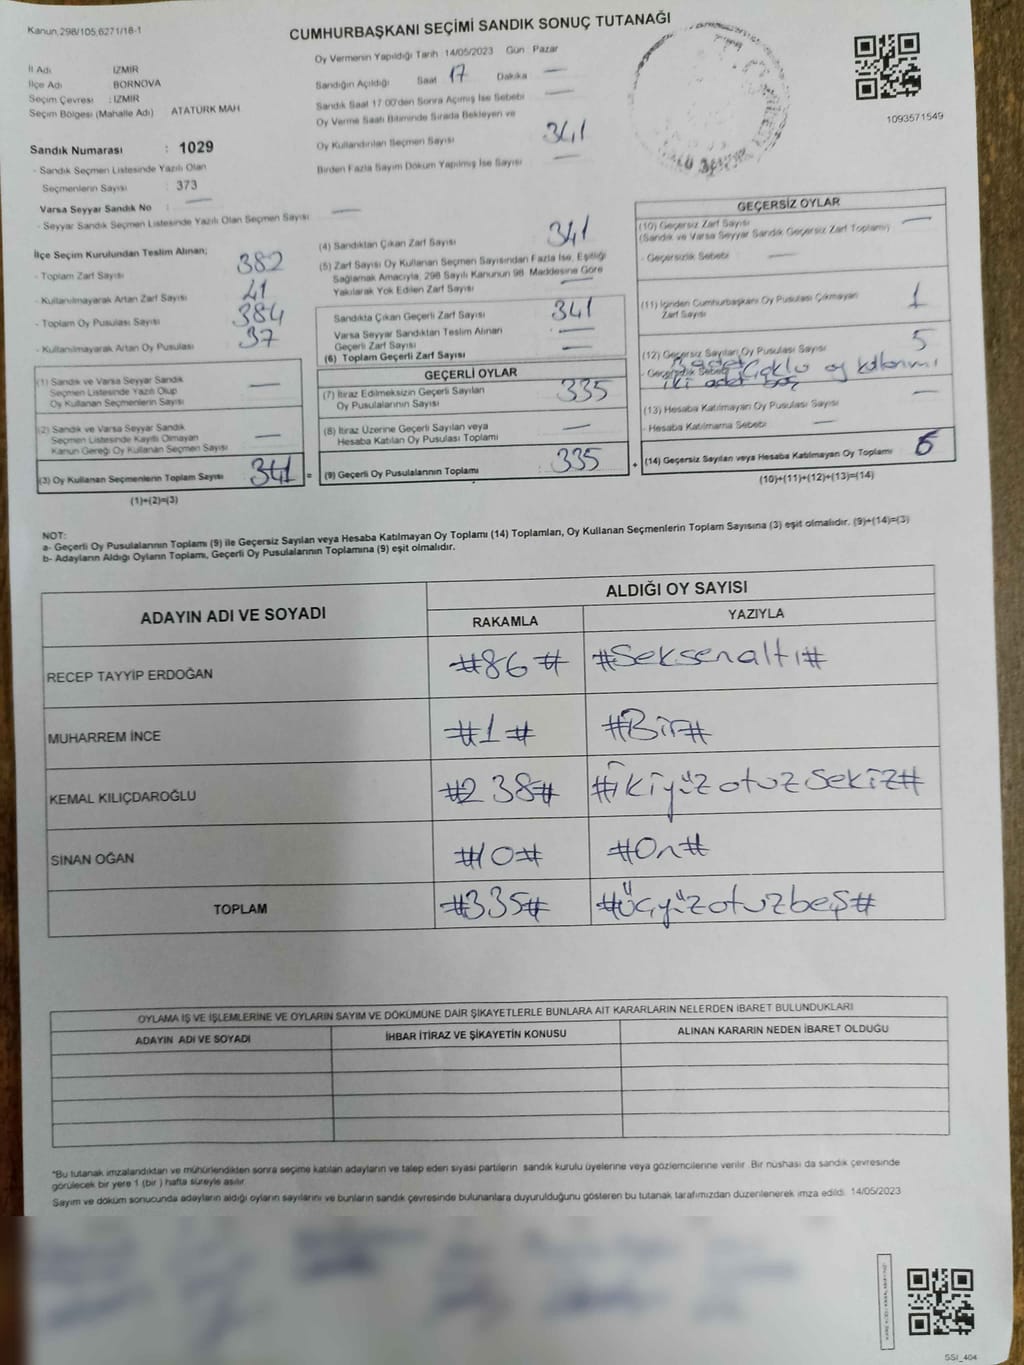 Kanun,298/105,6271/18-1
CUMHURBAŞKANI SEÇİMİ SANDIK SONUÇ TUTANAĞI
İl Adı IZMIR
İlçe Adı BORNOVA
Seçim Çevresi : IZMIR
Seçim Bölgesi (Mahalle Adı) ATATÜRK MAH
Sandık Numarası : 1029
- Sandık Seçmen Listesinde Yazılı Olan
Seçmenlerin Sayısı : 373
Varsa Seyyar Sandık No :
- Seyyar Sandık Seçmen Listesinde Yazılı Olan Seçmen Sayısı
Oy Vermenin Yapıldığı Tarih : 14/05/2023 Gün : Pazar
Sandığın Açıldığı Saat 17 Dakika
Sandık Saat 17 00'den Sonra Açımış İse Sebebi
Oy Verme Saati Bitiminde Sırada Bekleyen ve
Oy Kullandırılan Seçmen Sayısı 341
Birden Fazla Sayım Döküm Yapılmış İse Sayısı
1093571549
İlçe Seçim Kurulundan Teslim Alınan;
- Toplam Zarf Sayısı 382
- Kullanılmayarak Artan Zarf Sayısı 41
- Toplam Oy Pusulası Sayısı 384
- Kullanılmayarak Artan Oy Pusulası 37
(1) Sandık ve Varsa Seyyar Sandık
Seçmen Listesinde Yazılı Olup
Oy Kullanan Seçmenlerin Sayısı
(2) Sandık ve Varsa Seyyar Sandık
Seçmen Listesinde Kayıtlı Olmayan
Kanun Gereği Oy Kullanan Seçmen Sayısı
(3) Oy Kullanan Seçmenlerin Toplam Sayısı 341 =
(1)+(2)=(3)
(4) Sandıktan Çıkan Zarf Sayısı 341
(5) Zarf Sayısı Oy Kullanan Seçmen Sayısından Fazla İse, Eşitliği
Sağlamak Amacıyla, 298 Sayılı Kanunun 98. Maddesine Göre
Yakılarak Yok Edilen Zarf Sayısı
Sandıkta Çıkan Geçerli Zarf Sayısı 341
Varsa Seyyar Sandıktan Teslim Alınan
Geçerli Zarf Sayısı
(6) Toplam Geçerli Zarf Sayısı
GEÇERLİ OYLAR
(7) İtiraz Edilmeksizin Geçerli Sayılan
Oy Pusulalarının Sayısı 335
(8) İtiraz Üzerine Geçerli Sayılan veya
Hesaba Katılan Oy Pusulası Toplamı
(9) Geçerli Oy Pusulalarının Toplamı : 335 +
GEÇERSİZ OYLAR
(10) Geçersiz Zarf Sayısı
(Sandık ve Varsa Seyyar Sandık Geçersiz Zarf Toplamı)
- Geçersizlik Sebebi
(11) İçinden Cumhurbaşkanı Oy Pusulası Çıkmayan
Zarf Sayısı 1
(12) Geçersiz Sayılan Oy Pusulası Sayısı 5
- Geçersizlik Sebebi adet Çoklu oy kullanımı
iki adet boş
(13) Hesaba Katılmayan Oy Pusulası Sayısı
- Hesaba Katılmama Sebebi
(14) Geçersiz Sayılan veya Hesaba Katılmayan Oy Toplamı 6
(10)+(11)+(12)+(13)=(14)
NOT:
a- Geçerli Oy Pusulalarının Toplamı (9) ile Geçersiz Sayılan veya Hesaba Katılmayan Oy Toplamı (14) Toplamları, Oy Kullanan Seçmenlerin Toplam Sayısına (3) eşit olmalıdır. (9)+(14)=(3)
b- Adayların Aldığı Oyların Toplamı, Geçerli Oy Pusulalarının Toplamına (9) eşit olmalıdır.
ADAYIN ADI VE SOYADI ALDIĞI OY SAYISI
RAKAMLA YAZIYLA
RECEP TAYYİP ERDOĞAN #86# #Seksenaltı#
MUHARREM İNCE #1# #Bir#
KEMAL KILIÇDAROĞLU #238# #ikiyüzotuzsekiz#
SİNAN OĞAN #10# #On#
TOPLAM #335# #üçyüzotuzbeş#
OYLAMA İŞ VE İŞLEMLERİNE VE OYLARIN SAYIM VE DÖKÜMÜNE DAİR ŞİKAYETLERLE BUNLARA AİT KARARLARIN NELERDEN İBARET BULUNDUKLARI
ADAYIN ADI VE SOYADI İHBAR İTİRAZ VE ŞİKAYETİN KONUSU ALINAN KARARIN NEDEN İBARET OLDUĞU
"Bu tutanak imzalandıktan ve mühürlendikten sonra seçime katılan adayların ve talep eden siyasi partilerin sandık kurulu üyelerine veya gözlemcilerine verilir. Bir nüshası da sandık çevresinde
görülecek bir yere 1 (bir ) hafta süreyle asılır.
Sayım ve döküm sonucunda adayların aldığı oyların sayılarını ve bunların sandık çevresinde bulunanlara duyurulduğunu gösteren bu tutanak tarafımızdan düzenlenerek imza edildi. 14/05/2023
SSI_404